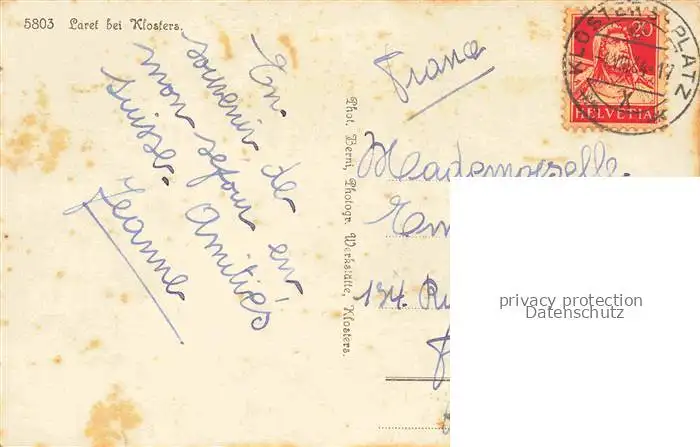 5803 Laret bei Klosters.
En
souvenir de
mon sejour en
suisse. Amitiés
Jeanne
Phot. Berni, Photogr. Werkstätte, Klosters.
France
20
HELVETIA
KLOSTERS-PLATZ
Mademoiselle
134. Ru
privacy protection
Datenschutz